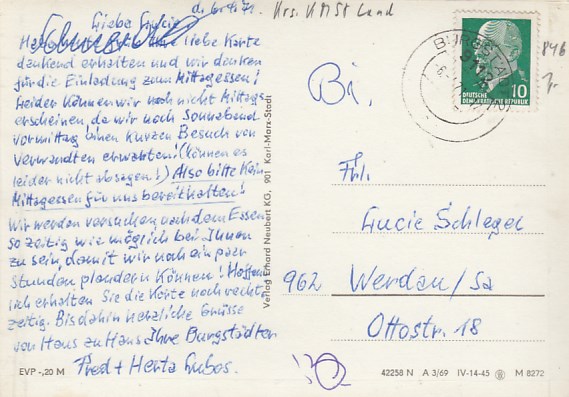 d. 6.4.71
Krs. KMSt Land
Liebe Lucie
liebe Karte
dankend erhalten und wir danken
für die Einladung zum Mittagessen!
Leider können wir noch nicht Mittags
erscheinen da wir noch Sonnabend
vormittag einen kurzen Besuch von
Verwandten erwarten! (können es
leider nicht absagen!) Also bitte kein
Mittagessen für uns bereithalten!
Wir werden versuchen nach dem Essen
so zeitig wie möglich bei Ihnen
zu sein, damit wir noch ein paar
Stunden plaudern können! Hoffent-
lich erhalten Sie die Karte noch recht-
zeitig. Bis dahin herzliche Grüsse
von Haus zu Haus Ihre Burgstädter
Fred + Herta
EVP -,20 M
Verlag Erhard Neubert KG, 901 Karl-Marx-Stadt
BURGSTÄ
DEUTSCHE
DEMOKRATISCHE REPUBLIK
10
846
Frl.
Lucie Schlegel
962 Werdau/Sa
Ottostr. 18
42258 N A 3/69 IV-14-45 M 8272